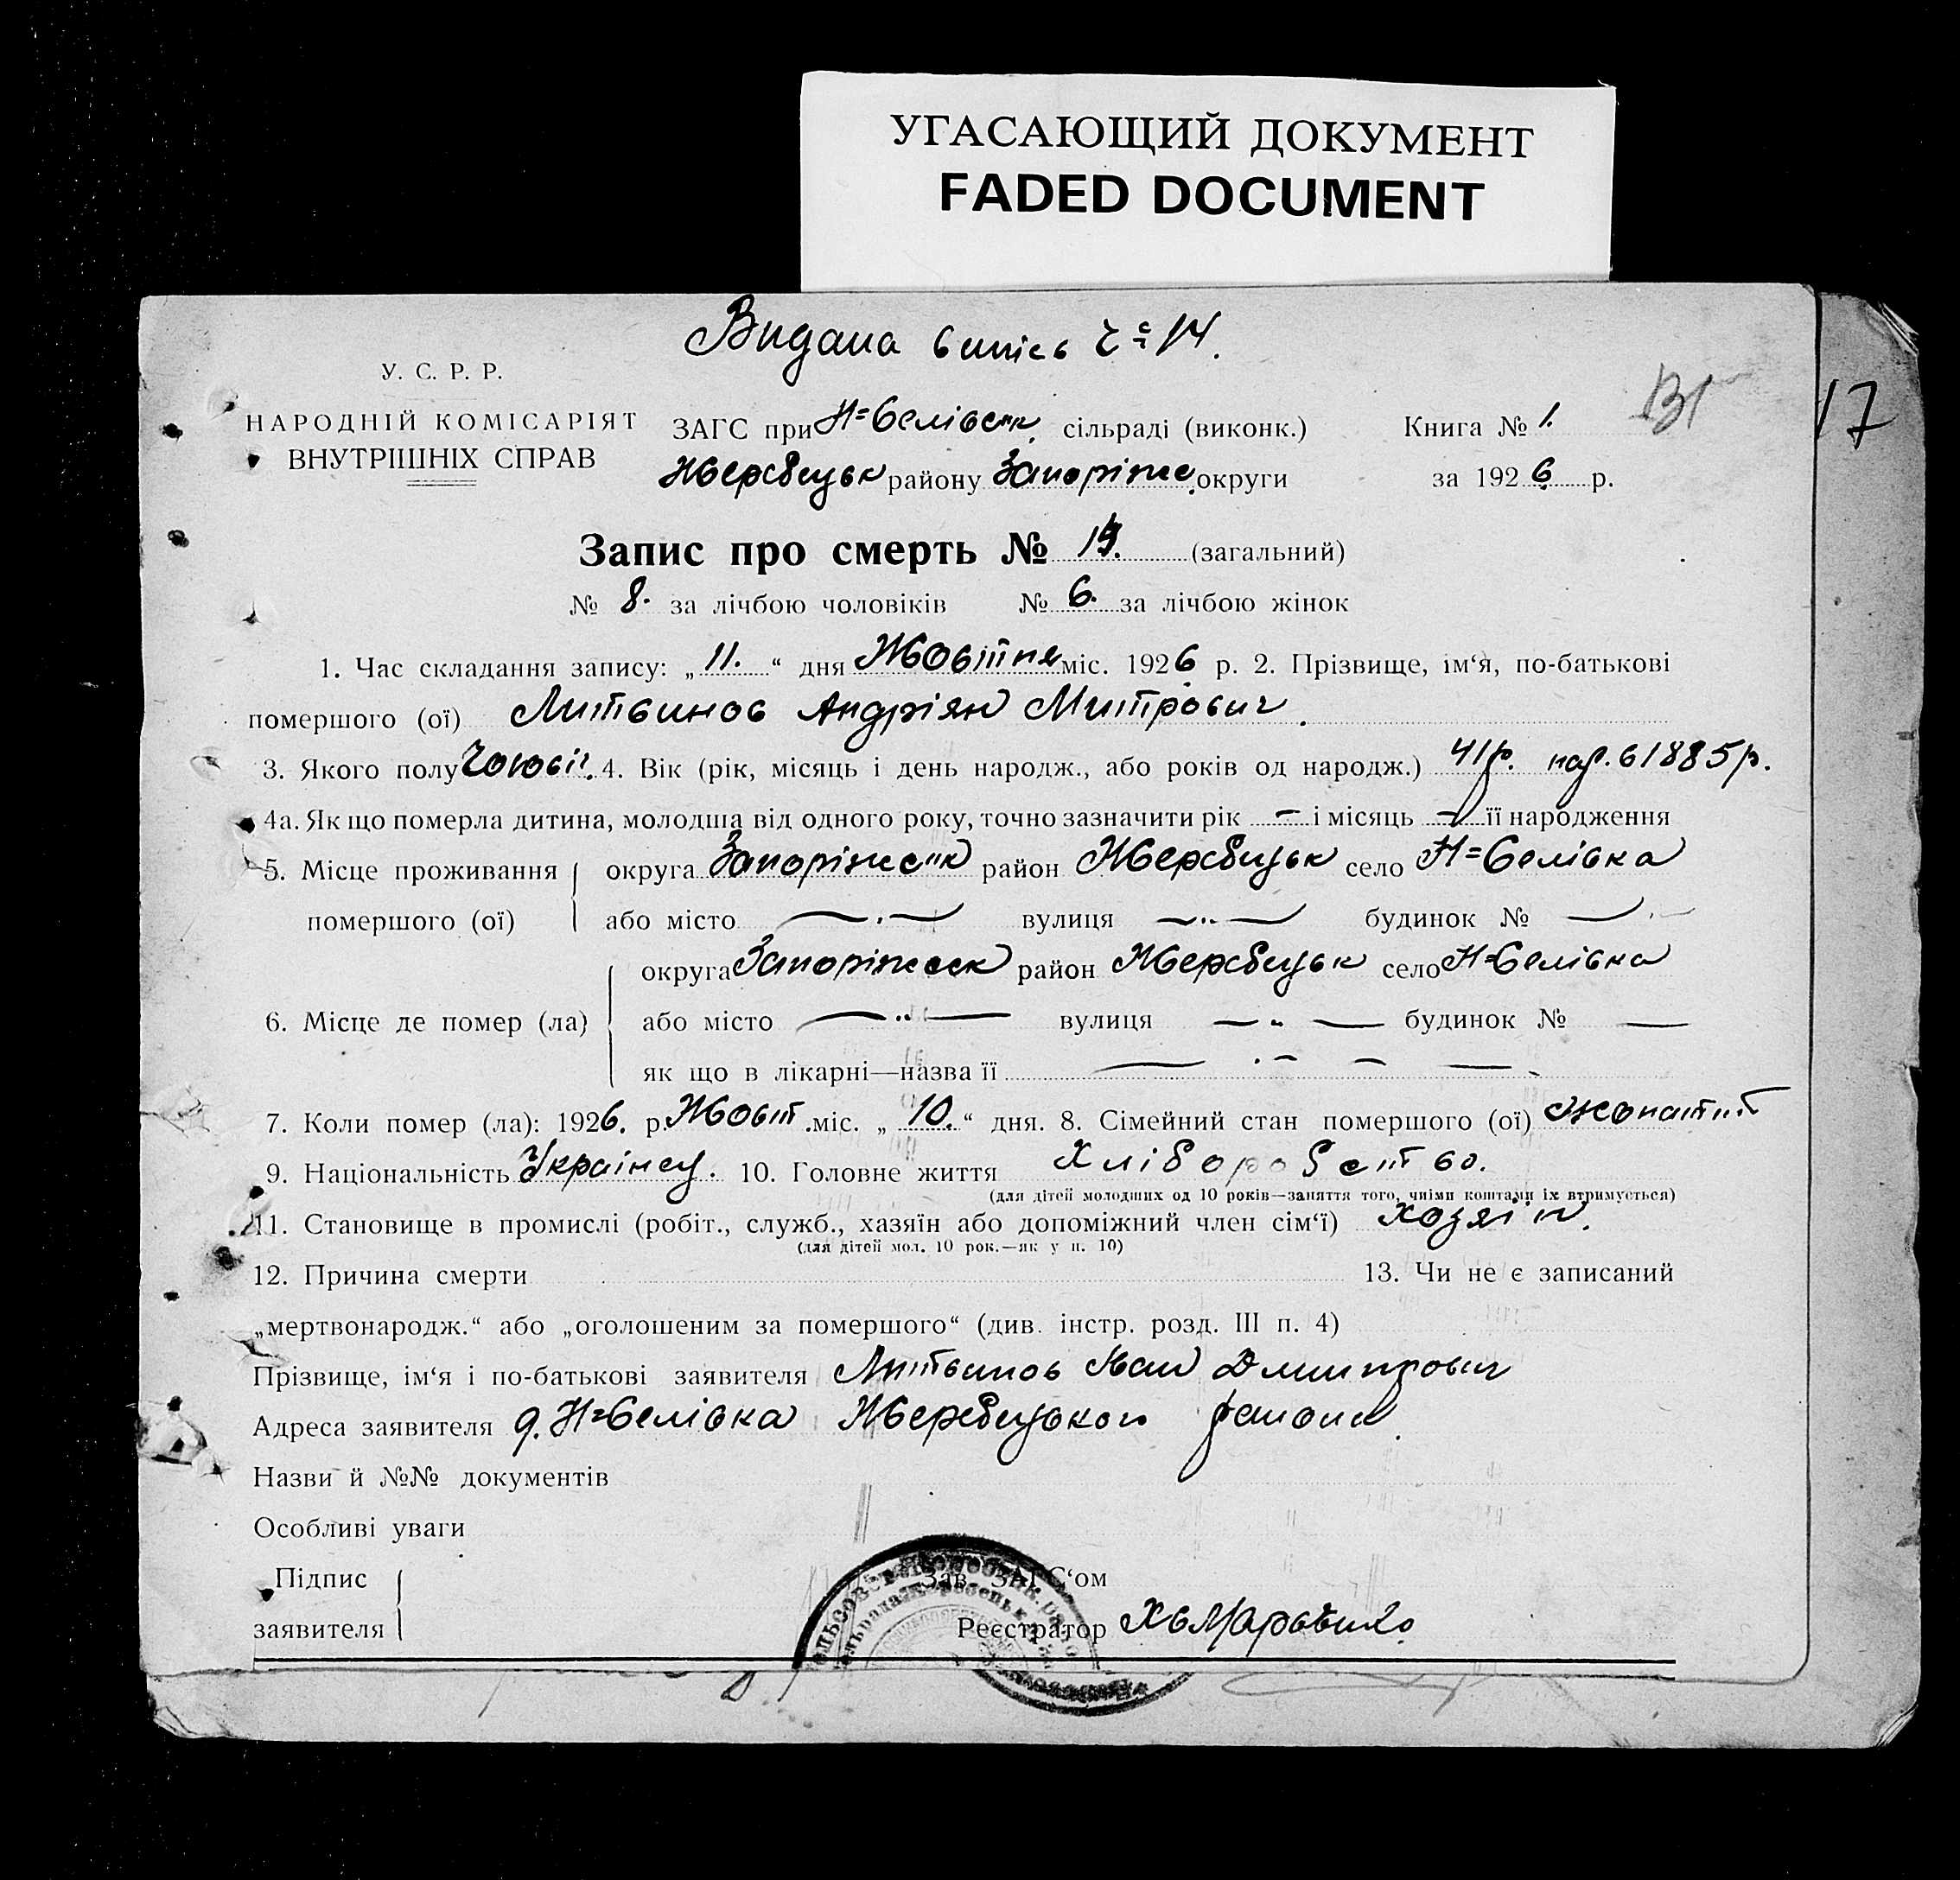 УГАСАЮЩИЙ ДОКУМЕНТ
FADED DOCUMENT
Видана випісь Ч= 14.
У. С. Р. Р.
НАРОДНІЙ КОМІСАРІЯТ
ВНУТРІШНІХ СПРАВ
ЗАГС при сільраді (виконк.)
Жеребецьк району Запоріже округи
Книга № 1.
за 1926 р.
17
Запис про смерть № (загальний)
№ 8. за лічбою чоловіків № 6. за лічбою жінок
1. Час складання запису: „11.“ дня Жовтня міс. 1926 р. 2. Прізвище, ім‘я, по-батькові
помершого (ої) Литвинов Андріян Митрович.
3. Якого полу 4. Вік (рік, місяць і день народж., або років од народж.) 41 р. нар. в 1885 р.
4а. Як що померла дитина, молодша від одного року, точно зазначити рік — і місяць — її народження
5. Місце проживання округа район Жеребецьк село Н=Велівка
помершого (ої) або місто вулиця будинок №
округа район Жеребецьк село Н=Велівка
6. Місце де помер (ла) або місто вулиця будинок №
як що в лікарні—назва її
7. Коли помер (ла): 1926. р. Жовт. міс. „10.“ дня. 8. Сімейний стан помершого (ої) жонатий
9. Національність Українец. 10. Головне життя Хліборобство.
(для дітей молодших од 10 років—заняття того, чиїми коштами їх втримується)
11. Становище в промислі (робіт., служб., хазяїн або допоміжний член сім‘ї) хозяїн.
(для дітей мол. 10 рок.—як у п. 10)
12. Причина смерти 13. Чи не є записаний
„мертвонародж.“ або „оголошеним за помершого“ (див. інстр. розд. III п. 4)
Прізвище, ім‘я і по-батькові заявителя Литвинов Іван Дмитрович
Адреса заявителя д. Н=Велівка Жеребецького району
Назви й №№ документів
Особливі уваги
Підпис
заявителя
Зав. ЗАГС‘ом
Реєстратор